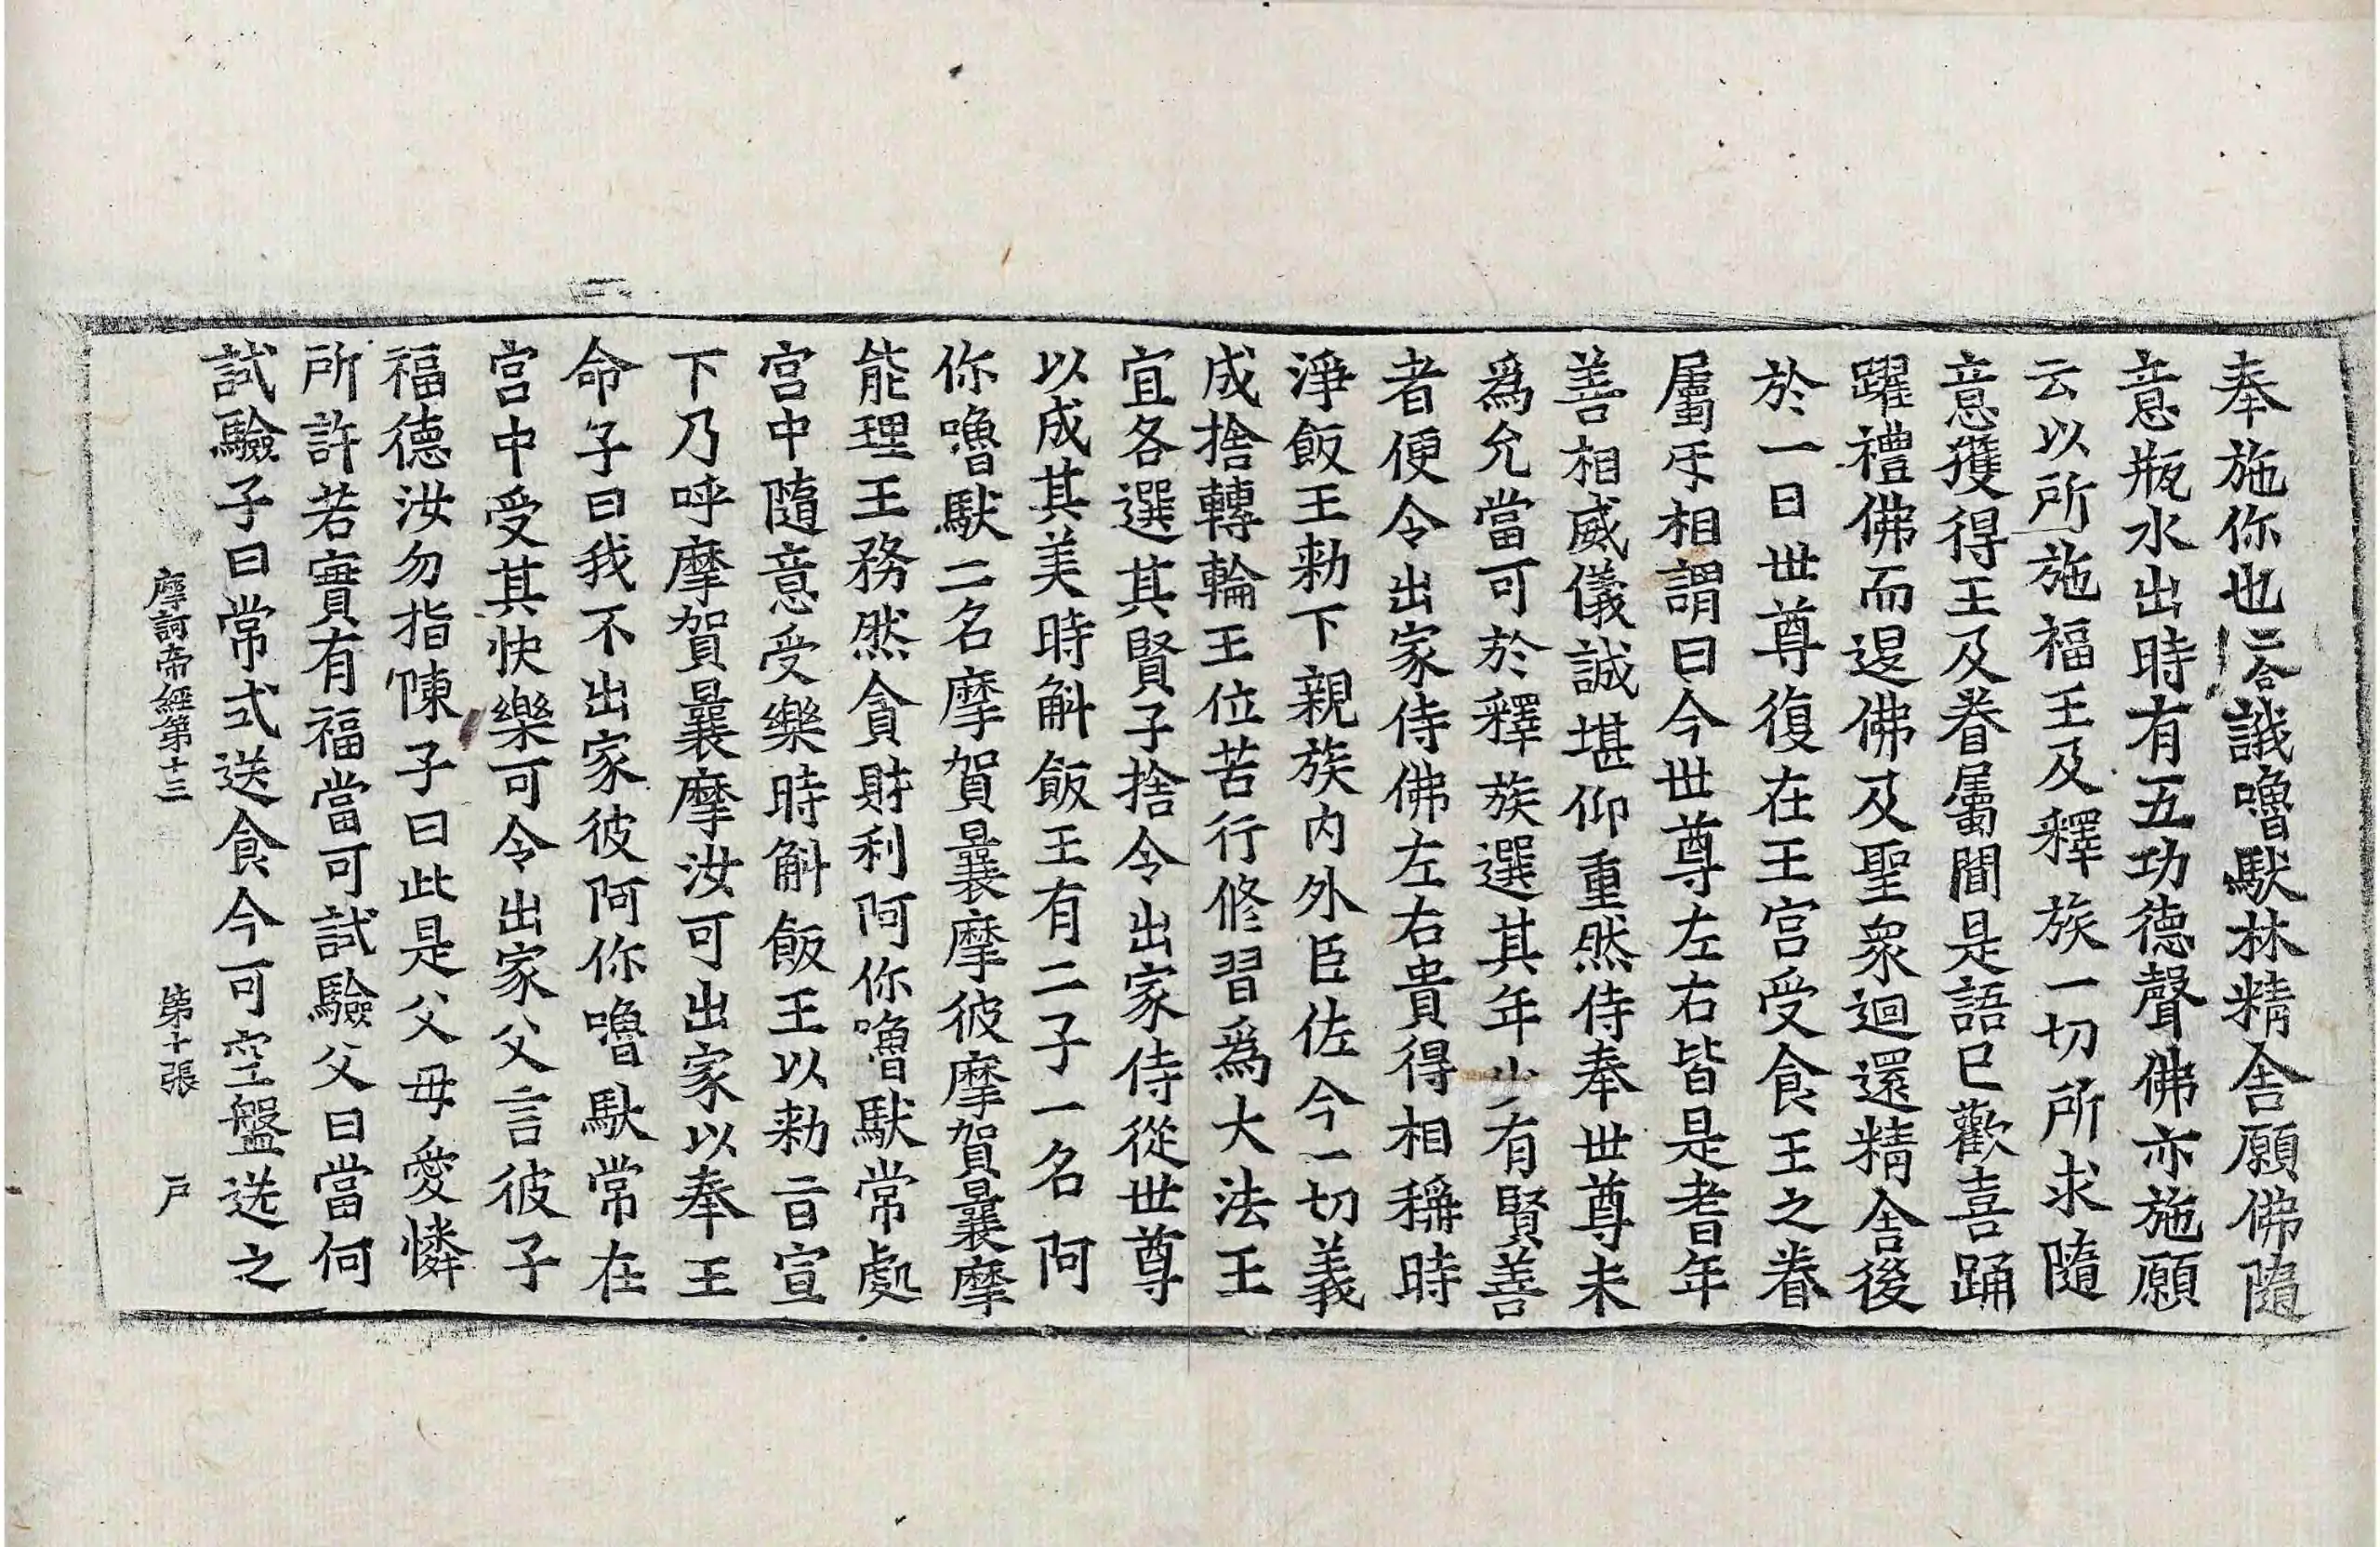 奉施你也二合誐嚕馱林精舍願佛隨
意瓶水出時有五功德聲佛亦施願
云以所施福王及釋族一切所求隨
意獲得王及眷屬聞是語已歡喜踊
躍禮佛而退佛及聖衆迴還精舍後
於一日世尊復在王宮受食王之眷
屬㸦相謂曰今世尊左右皆是耆年
善相威儀誠堪仰重然侍奉世尊未
爲允當可於釋族選其年少有賢善
者便令出家侍佛左右貴得相稱時
淨飯王勑下親族內外臣佐今一切義
成捨轉輪王位苦行修習爲大法王
宜各選其賢子捨令出家侍從世尊
以成其美時斛飯王有二子一名阿
你嚕馱二名摩賀曩摩彼摩賀曩摩
能理王務然貪財利阿你嚕馱常處
宮中隨意受樂時斛飯王以勑旨宣
下乃呼摩賀曩摩汝可出家以奉王
命子曰我不出家彼阿你嚕馱常在
宮中受其快樂可令出家父言彼子
福德汝勿指陳子曰此是父母愛憐
所許若實有福當可試驗父曰當何
試驗子曰常式送食今可空盤送之
摩訶帝經第十三 第十張 戶